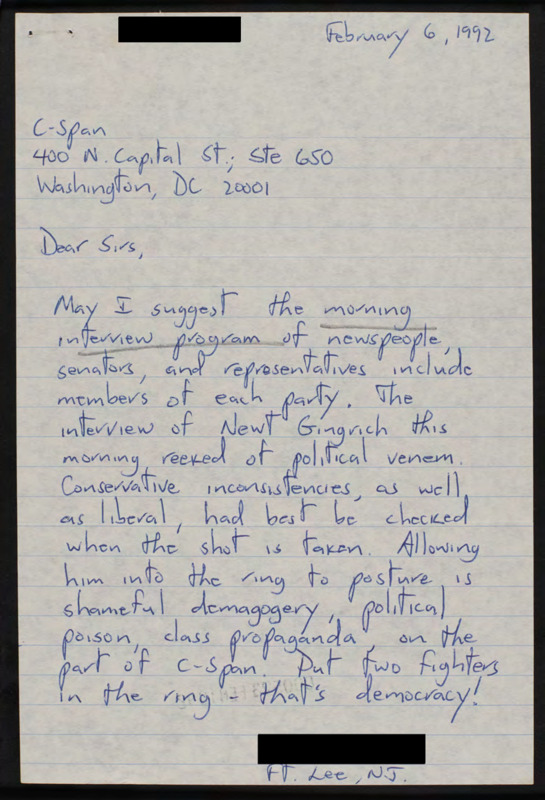 February 6, 1992
C-Span
400 N. Capital St.; Ste 650
Washington, DC 20001
Dear Sirs,
May I suggest the morning
interview program of newspeople,
senators, and representatives include
members of each party. The
interview of Newt Gingrich this
morning reeked of political venem.
Conservative inconsistencies, as well
as liberal, had best be checked
when the shot is taken. Allowing
him into the ring to posture is
shameful demagogery, political
poison, class propaganda, on the
part of C-Span. Put two fighters
in the ring - that's democracy!
Ft. Lee, N.J.